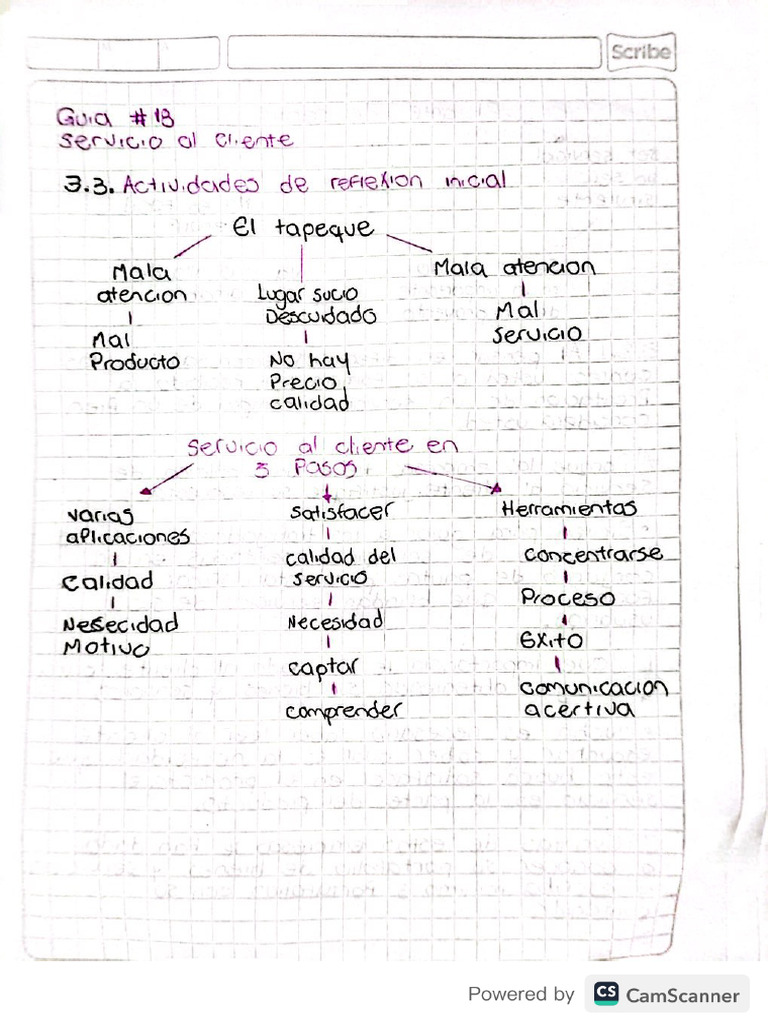 Scribe
Guia #13
Servicio al cliente
3.3. Actividades de reflexion inicial
El tapeque
Mala
atencion
Mal
Producto
Lugar sucio
Descuidado
No hay
Precio
calidad
Mala atencion
Mal
Servicio
Servicio al cliente en
5 Pasos
varias
aplicaciones
calidad
Nesecidad
Motivo
Satisfacer
calidad del
servicio
Necesidad
captar
comprender
Herramientas
concentrarse
Proceso
Exito
comunicacion
acertiva
Powered by CS CamScanner